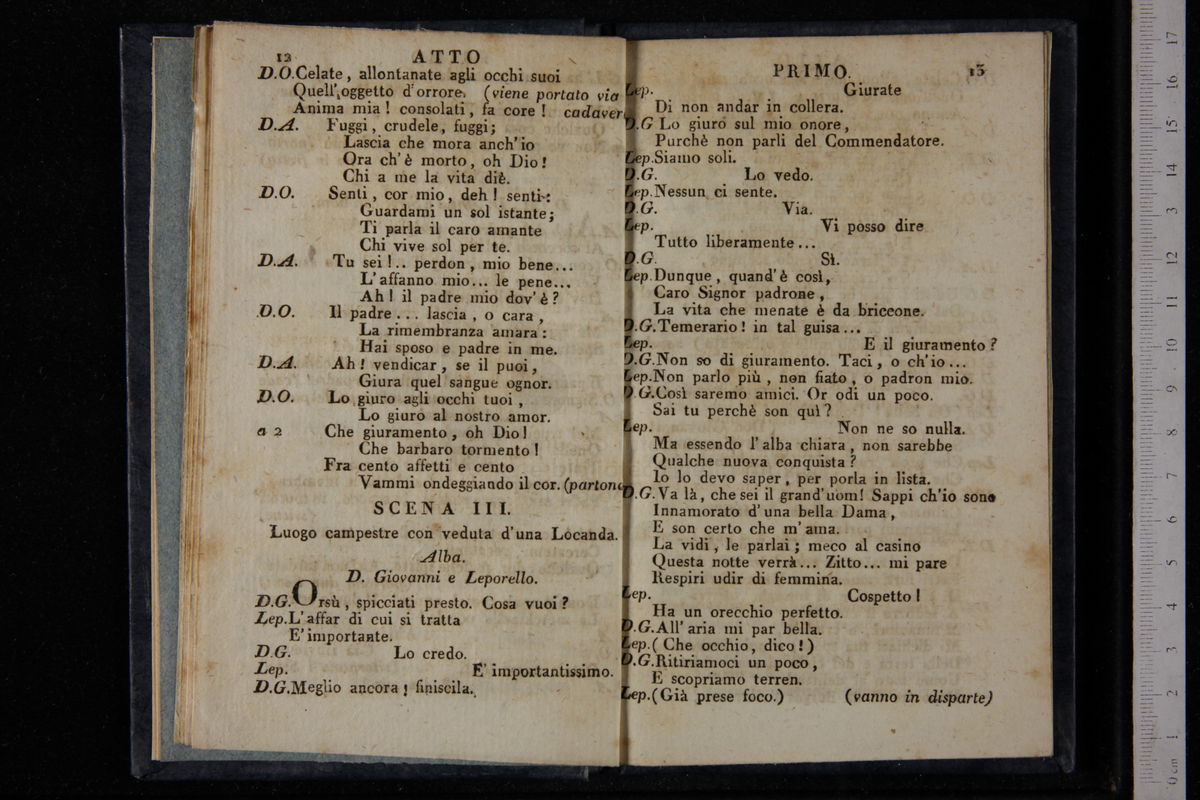 12 ATTO
D.O. Celate, allontanate agli occhi suoi
Quell' oggetto d'orrore. (viene portato via
Anima mia! consolati, fa core! cadaver
D.A. Fuggi, crudele, fuggi;
Lascia che mora anch'io
Ora ch'è morto, oh Dio!
Chi a me la vita diè.
D.O. Senti, cor mio, deh! senti:
Guardami un sol istante;
Ti parla il caro amante
Chi vive sol per te.
D.A. Tu sei!.. perdon, mio bene...
L'affanno mio... le pene...
Ah! il padre mio dov'è?
D.O. Il padre... lascia, o cara,
La rimembranza amara:
Hai sposo e padre in me.
D.A. Ah! vendicar, se il puoi,
Giura quel sangue ognor.
D.O. Lo giuro agli occhi tuoi,
Lo giuro al nostro amor.
a 2 Che giuramento, oh Dio!
Che barbaro tormento!
Fra cento affetti e cento
Vammi ondeggiando il cor. (partono
SCENA III.
Luogo campestre con veduta d'una Locanda.
Alba.
D. Giovanni e Leporello.
D.G. Orsù, spicciati presto. Cosa vuoi?
Lep. L'affar di cui si tratta
E' importante.
D.G. Lo credo.
Lep. E' importantissimo.
D.G. Meglio ancora! finiscila.
PRIMO. 13
Lep. Giurate
Di non andar in collera.
D.G Lo giuro sul mio onore,
Purchè non parli del Commendatore.
Lep. Siamo soli.
D.G. Lo vedo.
Lep. Nessun ci sente.
D.G. Via.
Lep. Vi posso dire
Tutto liberamente...
D.G. Sì.
Lep. Dunque, quand'è così,
Caro Signor padrone,
La vita che menate è da briccone.
D.G. Temerario! in tal guisa...
Lep. E il giuramento?
D.G. Non so di giuramento. Taci, o ch'io...
Lep. Non parlo più, non fiato, o padron mio.
D.G. Così saremo amici. Or odi un poco.
Sai tu perchè son quì?
Lep. Non ne so nulla.
Ma essendo l'alba chiara, non sarebbe
Qualche nuova conquista?
Io lo devo saper, per porla in lista.
D.G. Va là, che sei il grand'uom! Sappi ch'io sono
Innamorato d'una bella Dama,
E son certo che m'ama.
La vidi, le parlai; meco al casino
Questa notte verrà... Zitto... mi pare
Respiri udir di femmina.
Lep. Cospetto!
Ha un orecchio perfetto.
D.G. All'aria mi par bella.
Lep. (Che occhio, dico!)
D.G. Ritiriamoci un poco,
E scopriamo terren.
Lep. (Già prese foco.) (vanno in disparte)
17
16
15
14
13
12
11
10
9
8
7
6
5
4
3
2
1
0 cm